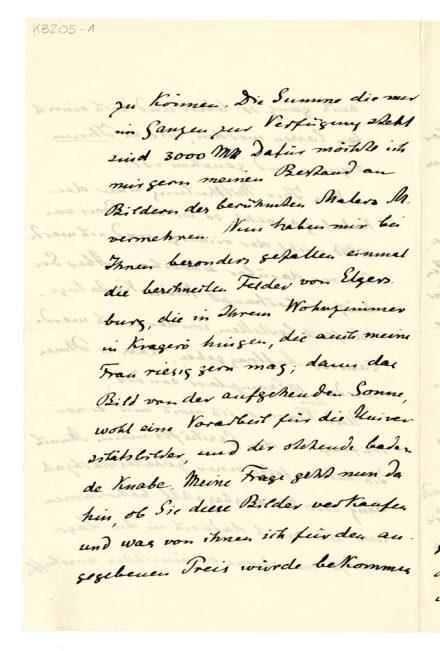 KB205-1
zu können. Die Summe die mir
im Ganzen zur Verfügung steht
sind 3000 Mk Dafür möchte ich
mir gern meinen Bestand an
Bildern des berühmten Malers M.
vermehren. Nun haben mir bei
Ihnen besonders gefallen einmal
die beschneiten Felder von Elgers
burg, die in Ihrem Wohnzimmer
in Kragerö hingen, die auch meine
Frau riesig gern mag; dann das
Bild von der aufgehenden Sonne,
wohl eine Vorarbeit für die Univer
sitätsbilder, und der stehende baden
de Knabe. Meine Frage geht nun da
hin, ob Sie diese Bilder verkaufen
und was von ihnen ich für den an-
gegebenen Preis würde bekommen